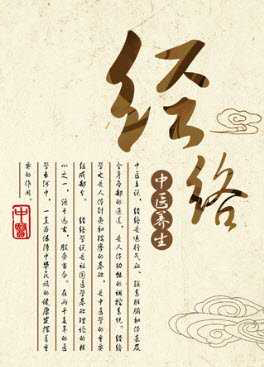 经络
中医养生
中医主张，经络是运行气血、联系脏腑和体表及
全身各部的通道，是人体功能的调控系统。经络
学也是人体针灸和按摩的基础，是中医学的重要
组成部分。 经络学说是祖国医学基础理论的核
心之一，源于远古，服务当今。在两千多年的医
学长河中，一直为保障中华民族的健康发挥着重
要的作用。
中醫